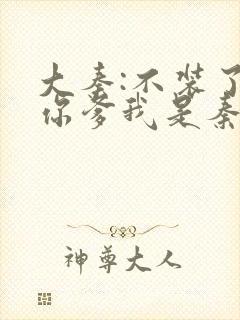 大秦:不装了
你爹我是秦
神尊大人